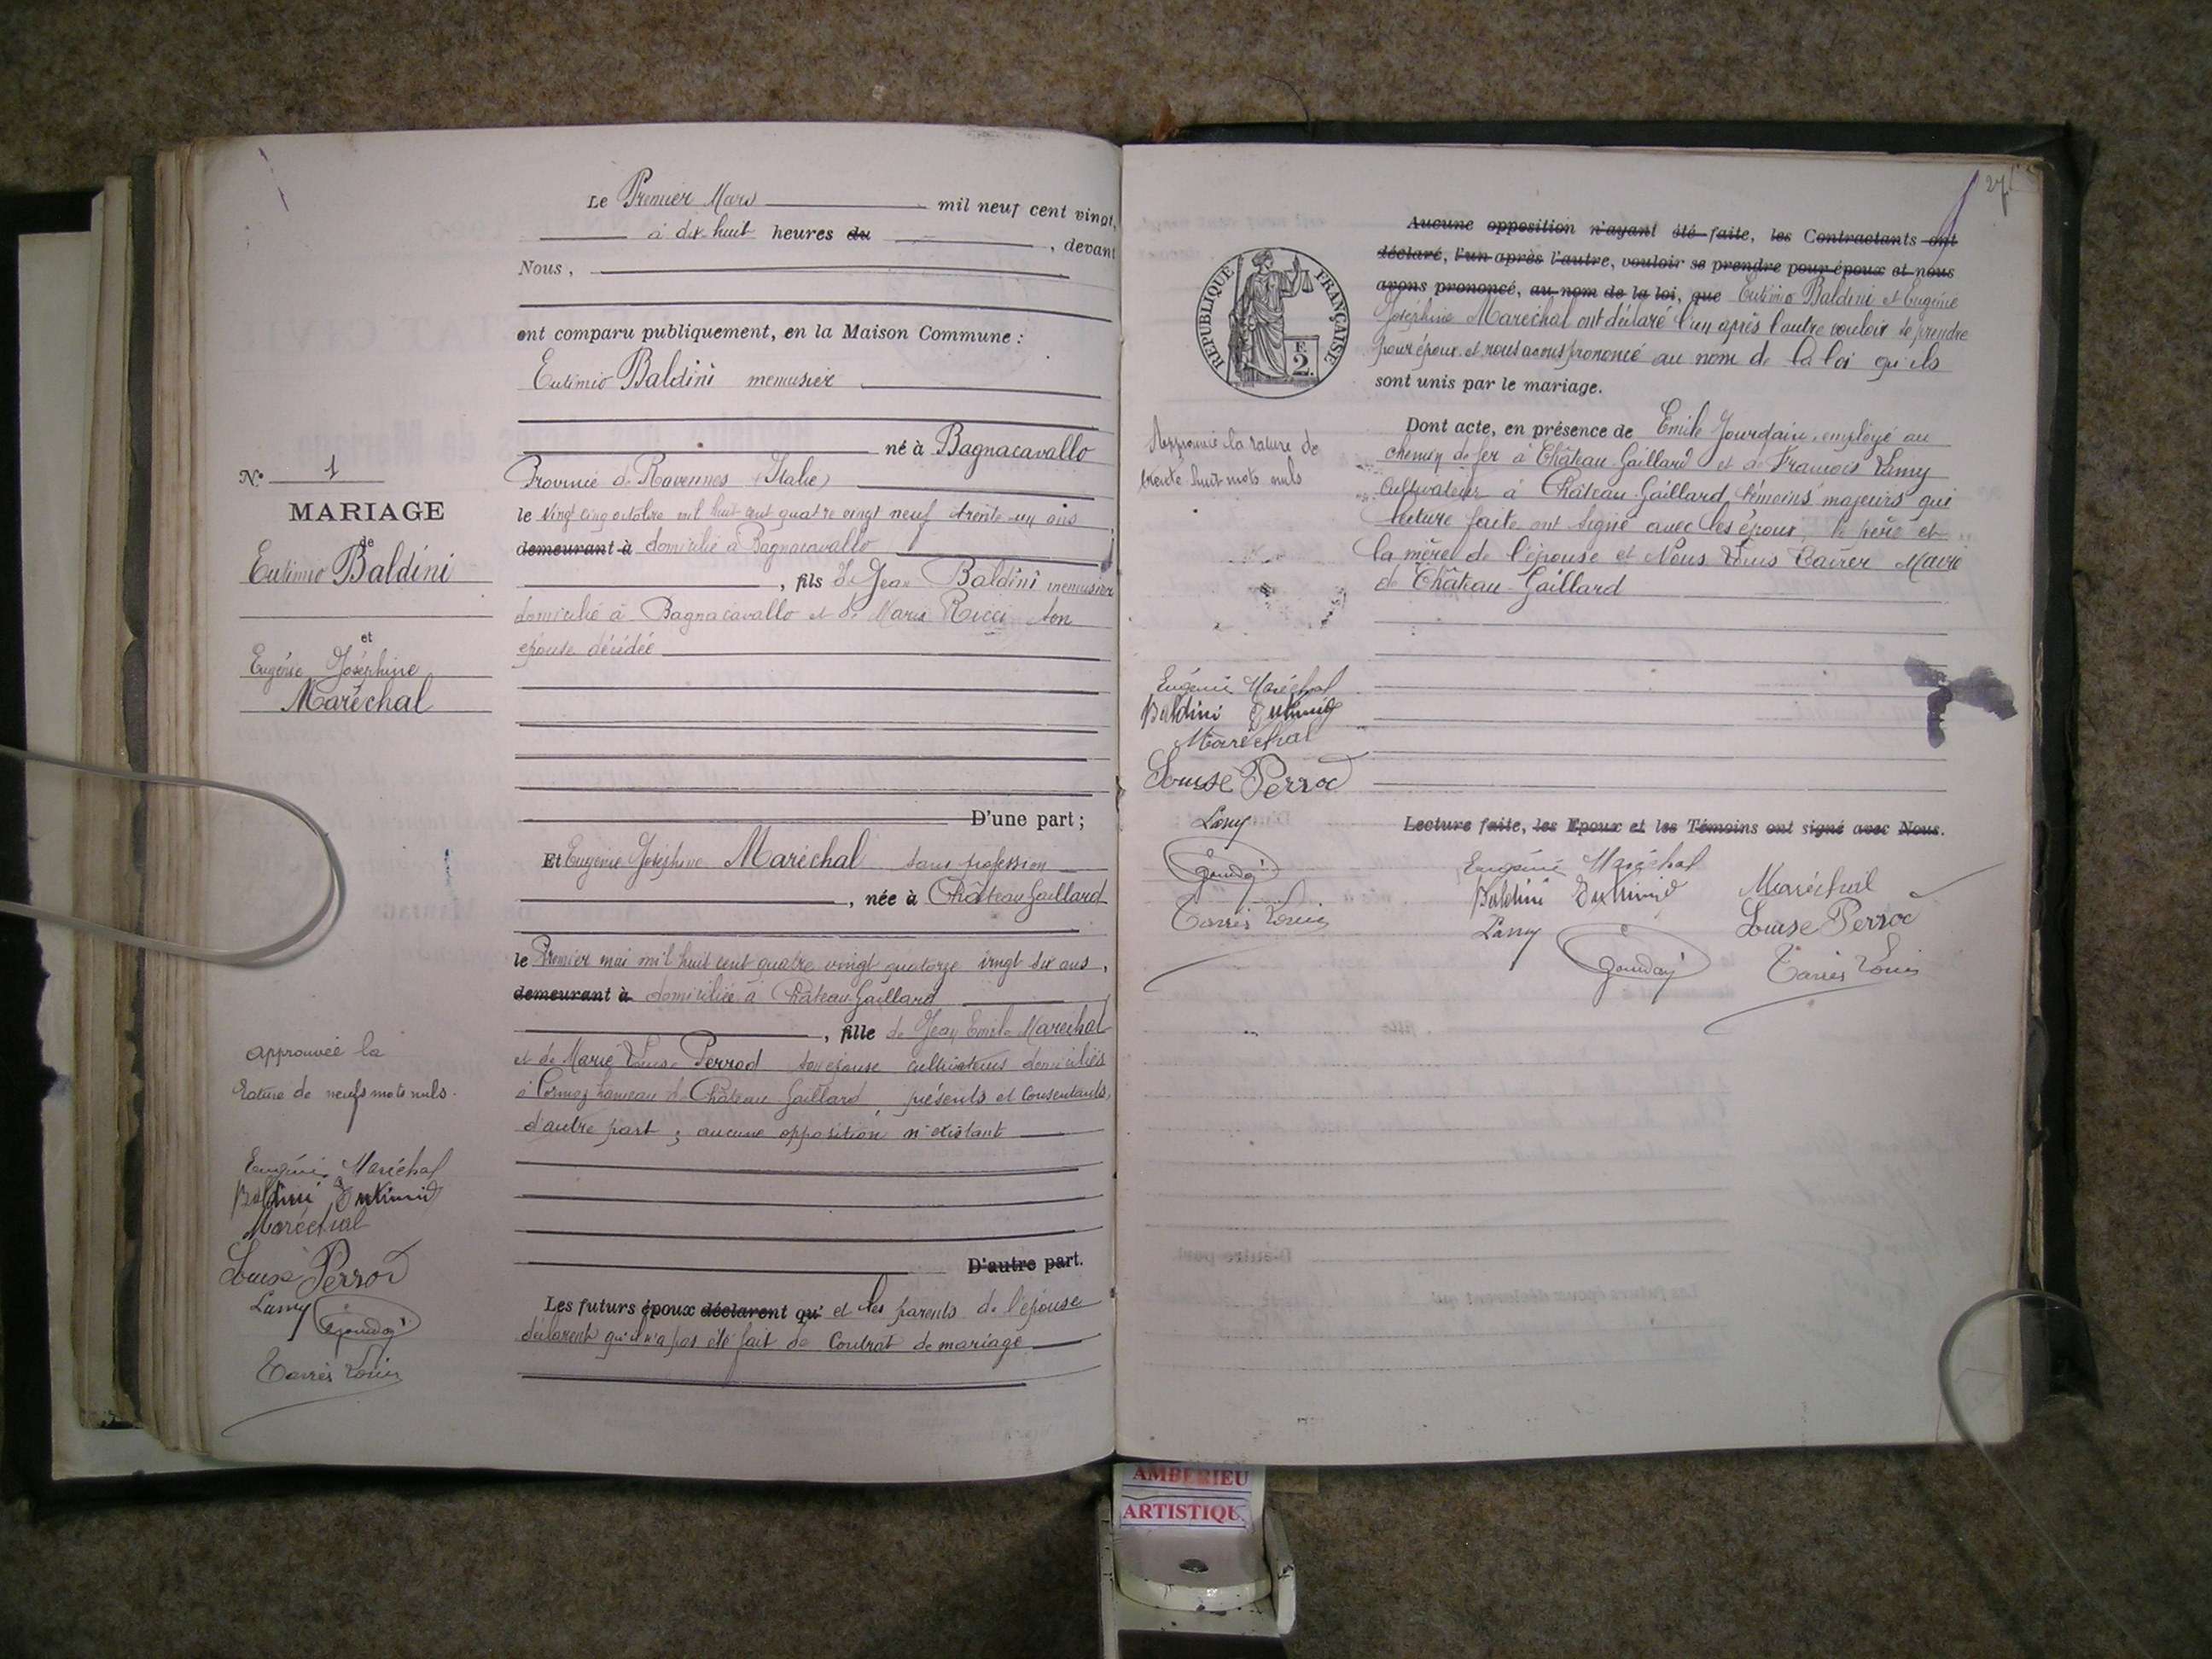 N.º 1
MARIAGE
de
Eutimio Baldini
et
Eugénie Joséphine
Maréchal
approuvée la
rature de neufs mots nuls.
Eugénie Maréchal
Baldini Eutimio
Maréchal
Louise Perrod
Lamy
Tarrer Louis
Le Premier Mars mil neuf cent vingt,
à dix huit heures du , devant
Nous,
ont comparu publiquement, en la Maison Commune :
Eutimio Baldini menuisier
né à Bagnacavallo
Province de Ravennes (Italie)
le vingt cinq octobre mil huit cent quatre vingt neuf trente un ans
demeurant à domicilié à Bagnacavallo
, fils de Jean Baldini menuisier
domicilié à Bagnacavallo et de Marie Ricci son
épouse décédée
D'une part ;
Et Eugénie Joséphine Maréchal sans profession
, née à Château Gaillard
le Premier mai mil huit cent quatre vingt quatorze vingt six ans,
demeurant à domiciliée à Château Gaillard
, fille de Jean Emile Maréchal
et de Marie Louise Perrod son épouse cultivateurs domiciliés
à Cormoz hameau de Château Gaillard, présents et consentants,
d'autre part ; aucune opposition n'existant
D'autre part.
Les futurs époux déclarent qu' et les parents de l'épouse
déclarent qu'il n'a pas été fait de Contrat de mariage
27
RÉPUBLIQUE FRANÇAISE
F.
2.
Approuvé la rature de
trente huit mots nuls
Eugénie Maréchal
Baldini Eutimio
Maréchal
Louise Perrod
Lamy
Tarrer Louis
Aucune opposition n'ayant été faite, les Contractants ont
déclaré, l'un après l'autre, vouloir se prendre pour époux et nous
avons prononcé, au nom de la loi, que Eutimio Baldini et Eugénie
Joséphine Maréchal ont déclaré l'un après l'autre vouloir se prendre
pour époux et nous avons prononcé au nom de la loi qu'ils
sont unis par le mariage.
Dont acte, en présence de Emile Jourdain employé au
chemin de fer à Château Gaillard et de François Lamy
Cultivateur à Château Gaillard témoins majeurs qui
lecture faite ont signé avec les époux, le père et
la mère de l'épouse et Nous Louis Tarrer Maire
de Château Gaillard
Lecture faite, les Epoux et les Témoins ont signé avec Nous.
Eugénie Maréchal
Baldini Eutimio
Maréchal
Lamy
Louise Perrod
Tarrer Louis
AMBERIEU
ARTISTIQU